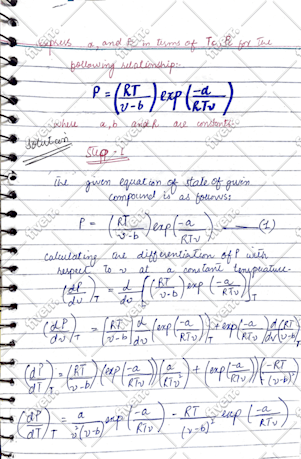 Express a, and b in terms of Tc, Pc for the
following relationship:-
P = (RT/v-b) exp(-a/RTv)
where a, b and R are constants.
Solution
Step-1
The given equation of state of given
compound is as follows:
P = (RT/v-b) exp(-a/RTv) —— (1)
calculating the differentiation of P with
respect to v at a constant temperature-
(dP/dv)_T = d/dv [(RT/v-b) exp(-a/RTv)]_T
(dP/dv)_T = (RT/v-b) d/dv (exp(-a/RTv))_T + exp(-a/RTv) d/dv (RT/v-b)_T
(dP/dT)_T = (RT/v-b) (exp(-a/RTv)) (a/RTv²) + (exp(-a/RTv)) (-RT/(v-b)²)
(dP/dT)_T = a/v²(v-b) exp(-a/RTv) - RT/(v-b)² exp(-a/RTv)